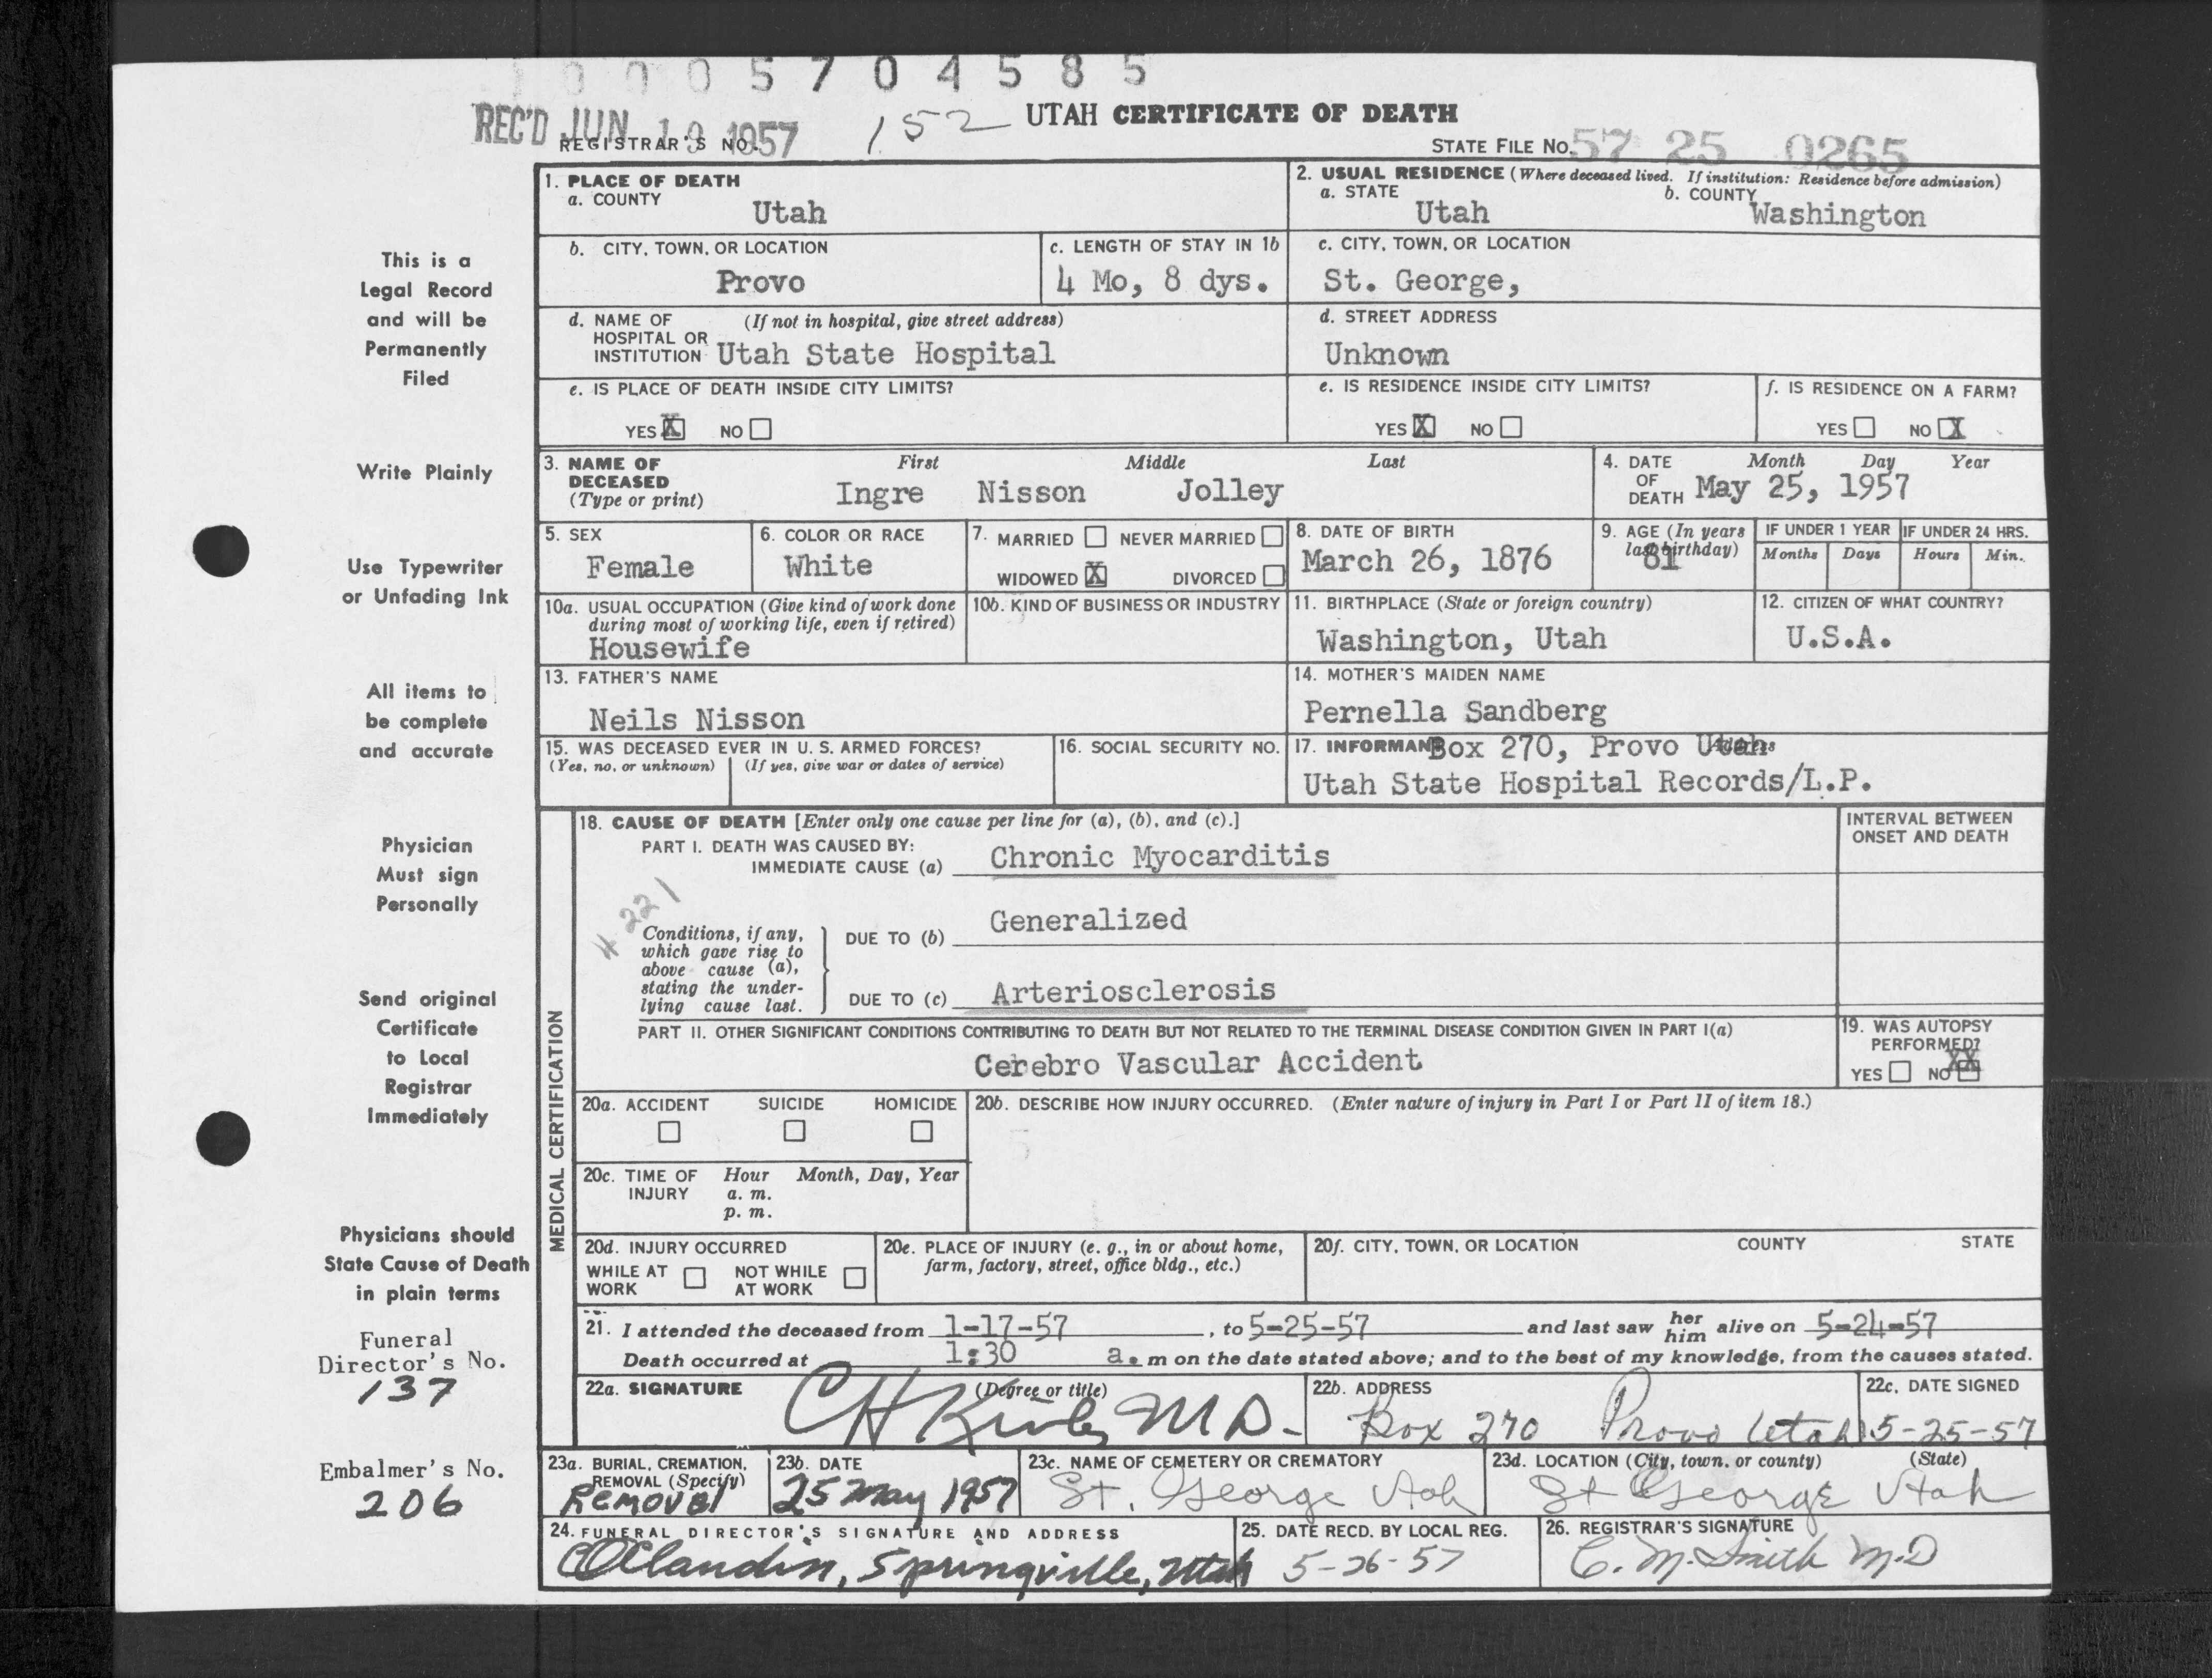 0 0 0 5 7 0 4 5 8 5
REC'D JUN 19 1957
UTAH CERTIFICATE OF DEATH
REGISTRAR'S NO. 152
STATE FILE NO. 57 25 0265
This is a
Legal Record
and will be
Permanently
Filed
Write Plainly
Use Typewriter
or Unfading Ink
All items to
be complete
and accurate
Physician
Must sign
Personally
Send original
Certificate
to Local
Registrar
Immediately
Physicians should
State Cause of Death
in plain terms
Funeral
Director's No.
137
Embalmer's No.
206
1. PLACE OF DEATH
a. COUNTY
Utah
2. USUAL RESIDENCE (Where deceased lived. If institution: Residence before admission)
a. STATE b. COUNTY
Utah Washington
b. CITY, TOWN, OR LOCATION
Provo
c. LENGTH OF STAY IN 1b
4 Mo, 8 dys.
c. CITY, TOWN, OR LOCATION
St. George,
d. NAME OF (If not in hospital, give street address)
HOSPITAL OR
INSTITUTION Utah State Hospital
d. STREET ADDRESS
Unknown
e. IS PLACE OF DEATH INSIDE CITY LIMITS?
YES X NO
e. IS RESIDENCE INSIDE CITY LIMITS?
YES X NO
f. IS RESIDENCE ON A FARM?
YES NO X
3. NAME OF First Middle Last
DECEASED
(Type or print) Ingre Nisson Jolley
4. DATE Month Day Year
OF
DEATH May 25, 1957
5. SEX
Female
6. COLOR OR RACE
White
7. MARRIED NEVER MARRIED
WIDOWED X DIVORCED
8. DATE OF BIRTH
March 26, 1876
9. AGE (In years
last birthday)
81
IF UNDER 1 YEAR
Months Days
IF UNDER 24 HRS.
Hours Min.
10a. USUAL OCCUPATION (Give kind of work done
during most of working life, even if retired)
Housewife
10b. KIND OF BUSINESS OR INDUSTRY
11. BIRTHPLACE (State or foreign country)
Washington, Utah
12. CITIZEN OF WHAT COUNTRY?
U.S.A.
13. FATHER'S NAME
Neils Nisson
14. MOTHER'S MAIDEN NAME
Pernella Sandberg
15. WAS DECEASED EVER IN U. S. ARMED FORCES?
(Yes, no, or unknown) (If yes, give war or dates of service)
16. SOCIAL SECURITY NO.
17. INFORMANT Box 270, Provo Utah Address
Utah State Hospital Records/L.P.
MEDICAL CERTIFICATION
18. CAUSE OF DEATH [Enter only one cause per line for (a), (b), and (c).]
INTERVAL BETWEEN
ONSET AND DEATH
PART I. DEATH WAS CAUSED BY:
IMMEDIATE CAUSE (a) Chronic Myocarditis
4221
Conditions, if any,
which gave rise to
above cause (a),
stating the under-
lying cause last.
DUE TO (b) Generalized
DUE TO (c) Arteriosclerosis
PART II. OTHER SIGNIFICANT CONDITIONS CONTRIBUTING TO DEATH BUT NOT RELATED TO THE TERMINAL DISEASE CONDITION GIVEN IN PART I(a)
Cerebro Vascular Accident
19. WAS AUTOPSY
PERFORMED?
YES NO XX
20a. ACCIDENT SUICIDE HOMICIDE
20b. DESCRIBE HOW INJURY OCCURRED. (Enter nature of injury in Part I or Part II of item 18.)
20c. TIME OF Hour Month, Day, Year
INJURY a. m.
p. m.
20d. INJURY OCCURRED
WHILE AT NOT WHILE
WORK AT WORK
20e. PLACE OF INJURY (e. g., in or about home,
farm, factory, street, office bldg., etc.)
20f. CITY, TOWN, OR LOCATION COUNTY STATE
21. I attended the deceased from 1-17-57, to 5-25-57 and last saw her him alive on 5-24-57
Death occurred at 1:30 a. m on the date stated above; and to the best of my knowledge, from the causes stated.
22a. SIGNATURE (Degree or title)
CH M D.
22b. ADDRESS
Box 270 Provo Utah
22c. DATE SIGNED
5-25-57
23a. BURIAL, CREMATION,
REMOVAL (Specify)
Removal
23b. DATE
25 May 1957
23c. NAME OF CEMETERY OR CREMATORY
St. George Utah
23d. LOCATION (City, town, or county) (State)
St George Utah
24. FUNERAL DIRECTOR'S SIGNATURE AND ADDRESS
Claudin, Springville, Utah
25. DATE RECD. BY LOCAL REG.
5-26-57
26. REGISTRAR'S SIGNATURE
C. M. Smith M.D